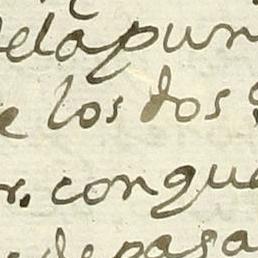 dela pun
e los dos
r. con que
de paga